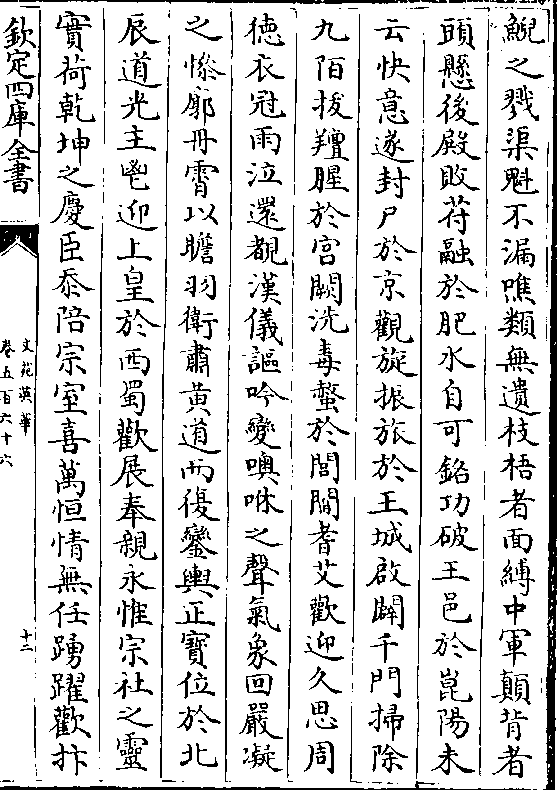 鯢之戮渠魁不漏噍類無遺枝梧者面縛中軍顛背者
頭懸後殿敗苻融於肥水自可銘功破王邑於崑陽未
云快意遂封尸於京觀旋振旅於王城啟闢千門掃除
九陌拔羶腥於宮闕洗毒螫於閭閻耆艾歡迎乆思周
徳衣冠雨泣還覩漢儀謳吟變噢咻之聲氣象回嚴凝
之慘廓丹霄以瞻羽衛肅黄道而復鑾輿正寶位於北
辰道光主鬯迎上皇於西蜀歡展奉親永惟宗社之靈
實荷乾坤之慶臣忝陪宗室喜萬恒情無任踴躍歡抃
欽定四庫全書
文苑英華
卷五百六十六
十三